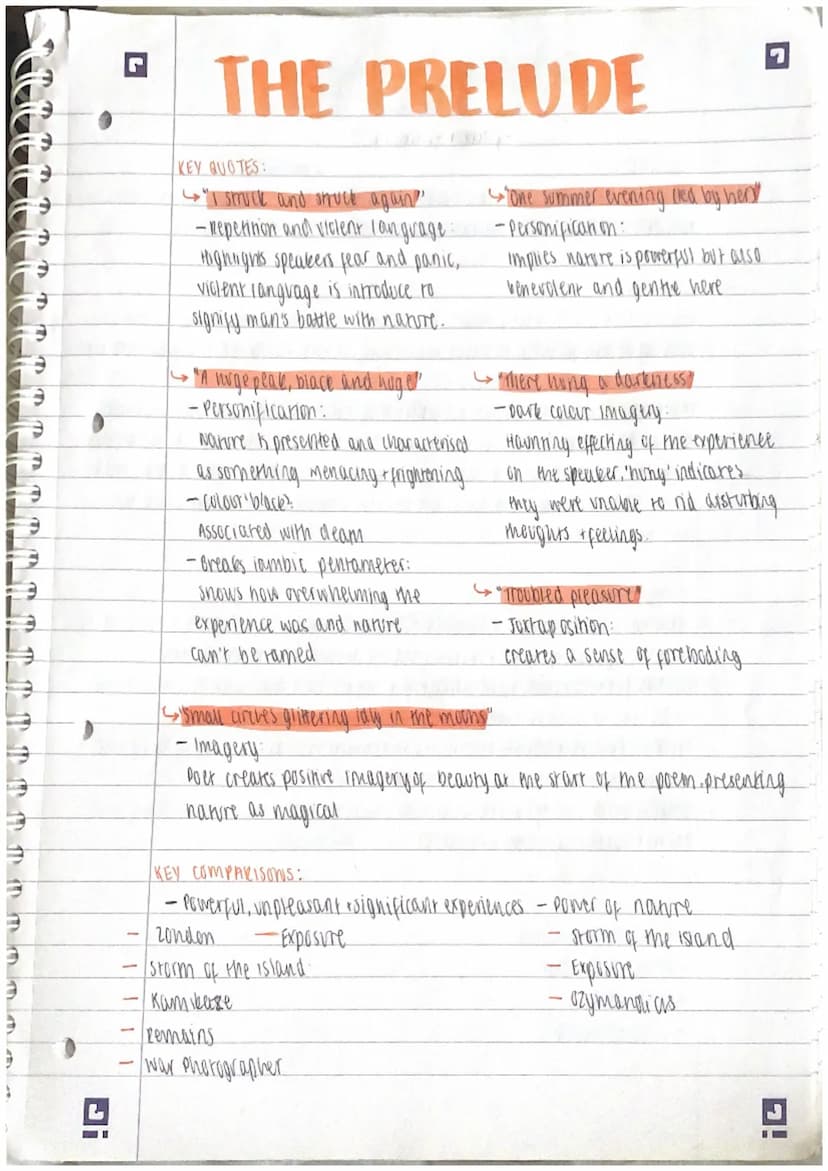 THE PRELUDE
KEY QUOTES:
"I struck and struck again"
- Repetition and violent language:
Highlights speakers fear and panic,
violent language is introduce to
signify man's battle with nature.
"One summer evening (led by her)"
- Personification:
implies nature is powerful but also
benevolent and gentle here
"A huge peak, black and huge"
- Personification:
Nature is presented and characterised
as something menacing + frightening
- Colour 'black':
Associated with death
- Breaks iambic pentameter:
shows how overwhelming the
experience was and nature
can't be tamed
"There hung a darkness"
- Dark colour imagery:
Haunting effecting of the experience
on the speaker, 'hung' indicates
they were unable to rid disturbing
thoughts + feelings.
"Troubled pleasure"
- Juxtaposition:
creates a sense of foreboding
"Small circles glittering idly in the moons"
- Imagery:
Poet creates positive imagery of beauty at the start of the poem, presenting
nature as magical
KEY COMPARISONS:
- Powerful, unpleasant + significant experiences
- London - Exposure
- Storm of the island
- Kamikaze
- Remains
- War Photographer
- Power of nature
- Storm of the island
- Exposure
- Ozymandias